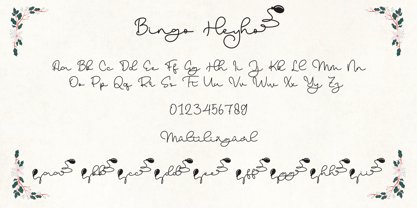 Bingo Heyho
Aa Bb Cc Dd Ee Ff Gg Hh Ii Jj Kk Ll Mm Nn
Oo Pp Qq Rr Ss Tt Uu Vv Ww Xx Yy Zz
0123456789
Multilingual